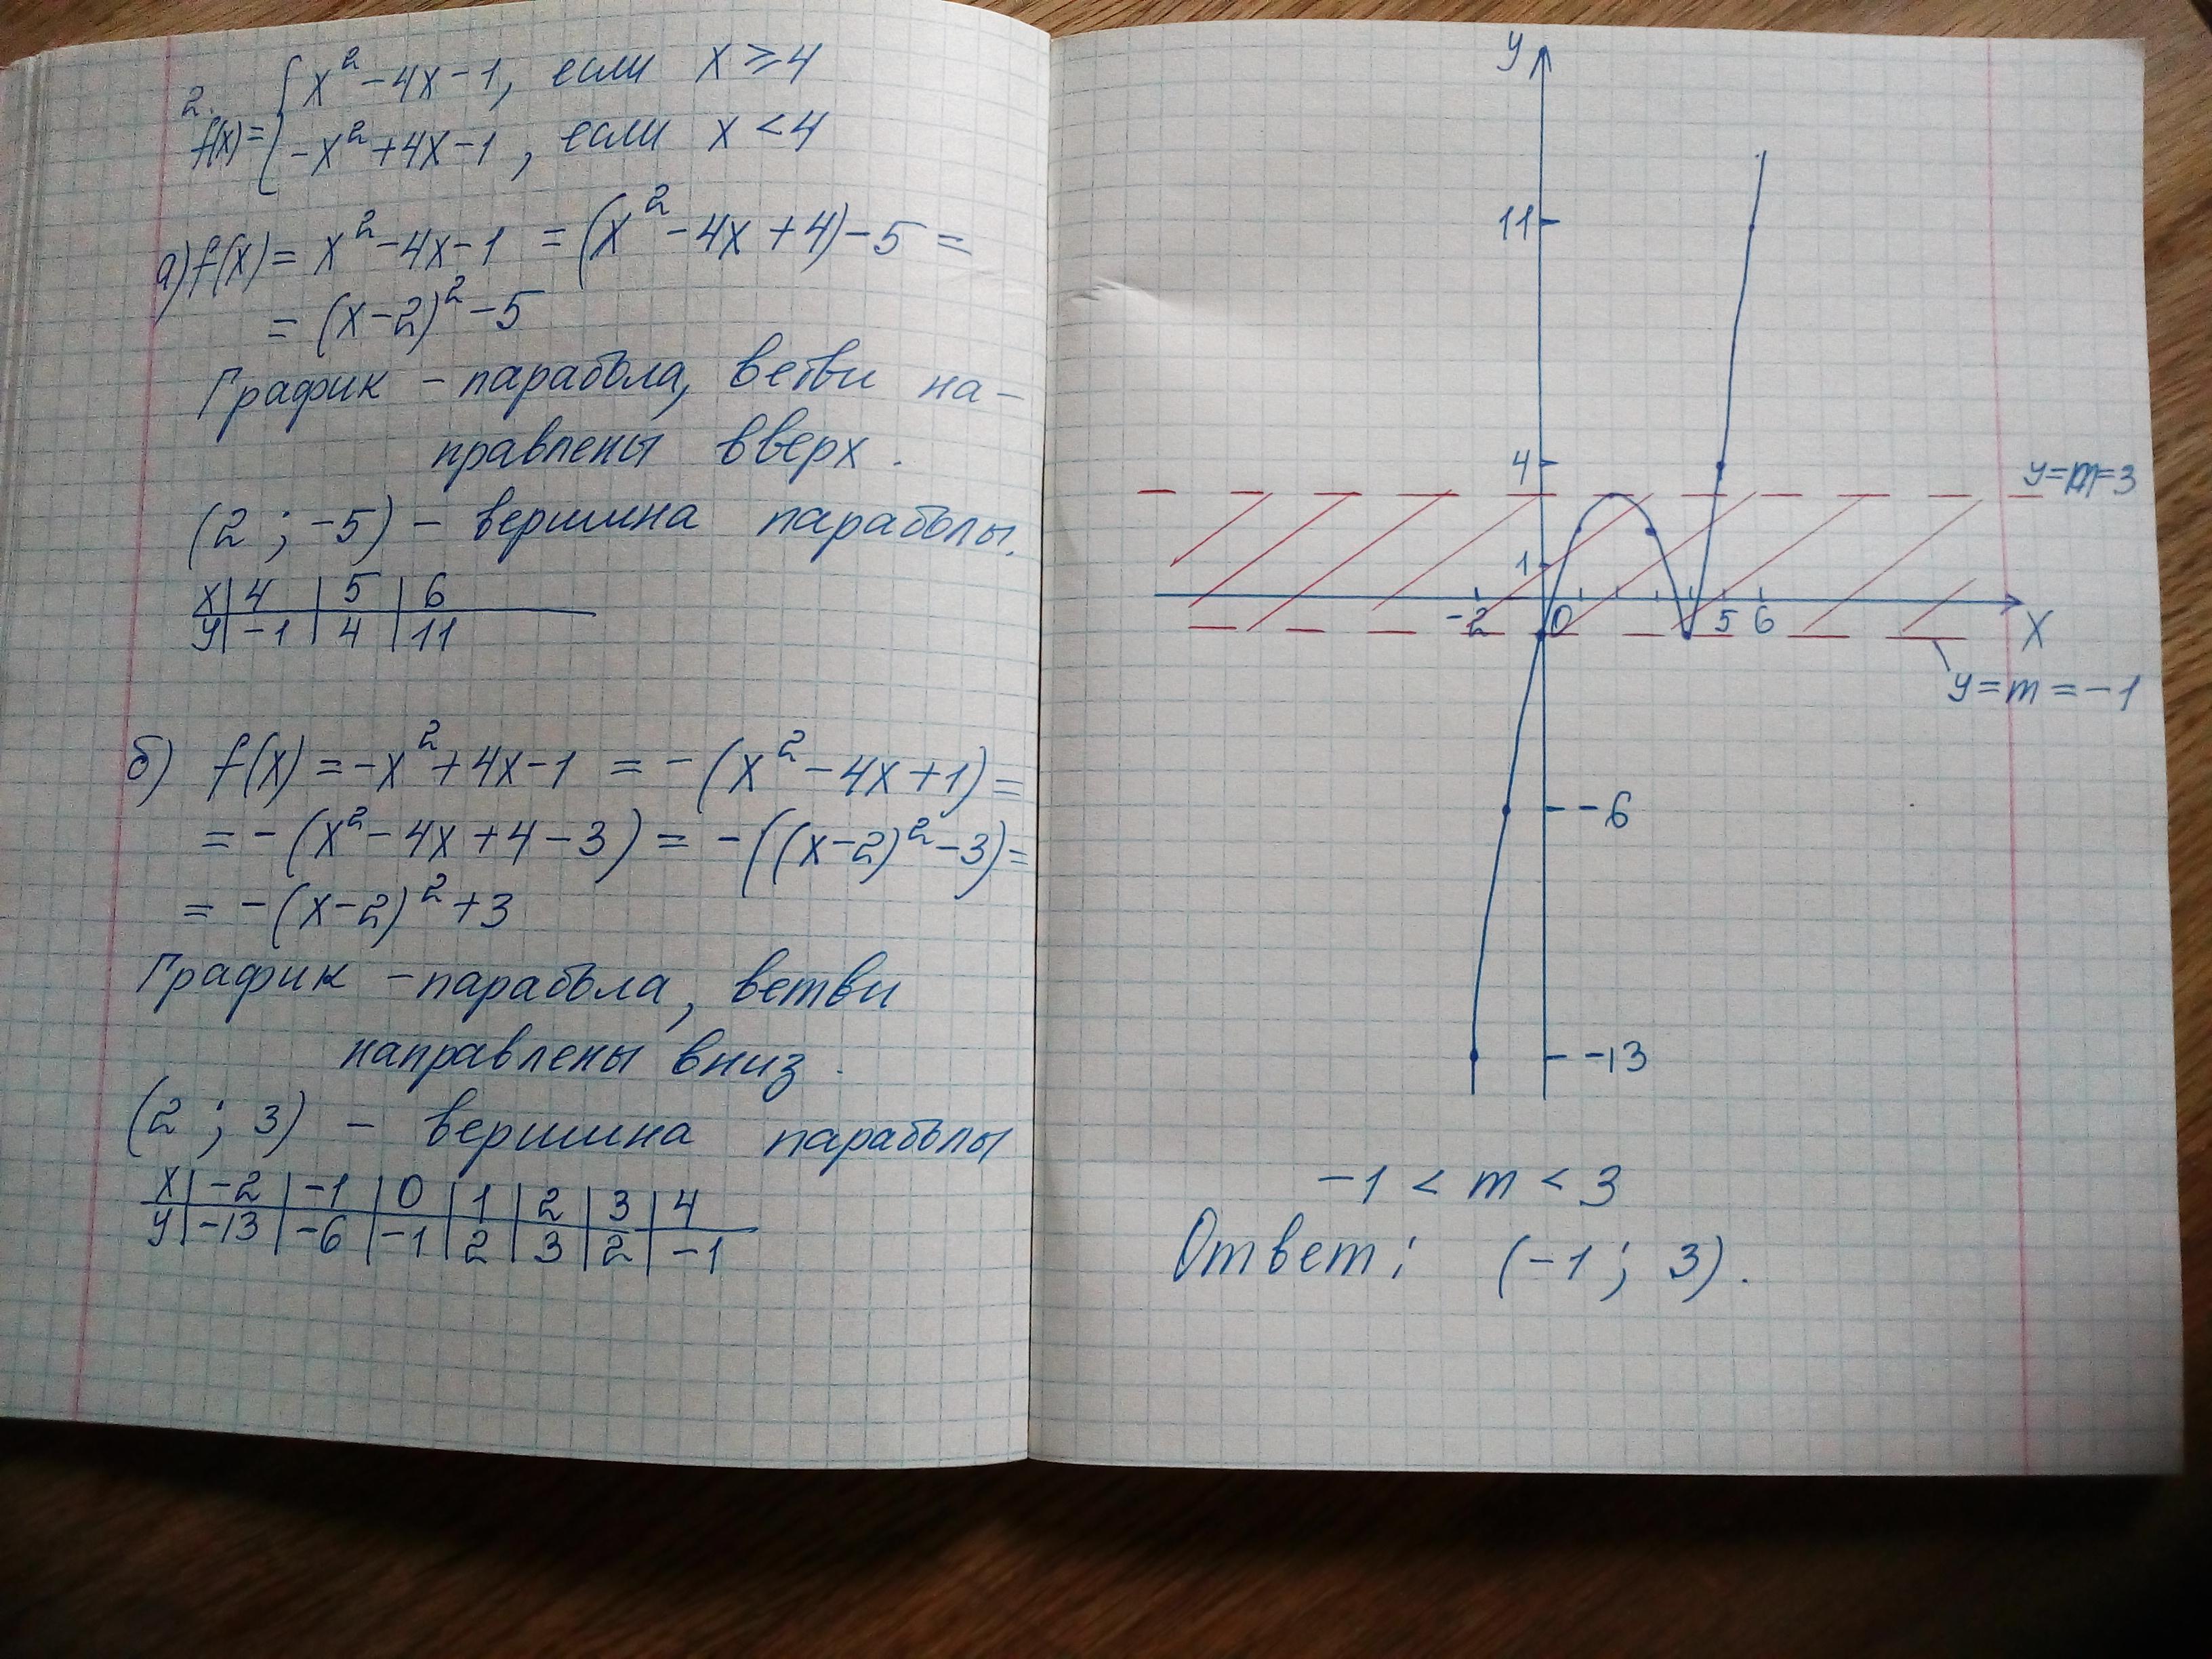 2.
f(x) = { x² - 4x - 1, если x ⩾ 4
-x² + 4x - 1, если x < 4
а) f(x) = x² - 4x - 1 = (x² - 4x + 4) - 5 =
= (x - 2)² - 5
График - парабола, ветви на-
правлены вверх.
(2 ; -5) - вершина параболы.
x | 4 | 5 | 6
y | -1 | 4 | 11
б) f(x) = -x² + 4x - 1 = -(x² - 4x + 1) =
= -(x² - 4x + 4 - 3) = -((x - 2)² - 3) =
= -(x - 2)² + 3
График - парабола, ветви
направлены вниз.
(2 ; 3) - вершина параболы
x | -2 | -1 | 0 | 1 | 2 | 3 | 4
y | -13 | -6 | -1 | 2 | 3 | 2 | -1
y
11
4
y = m = 3
1
-2 0 5 6
x
y = m = -1
-6
-13
-1 < m < 3
Ответ: (-1 ; 3).